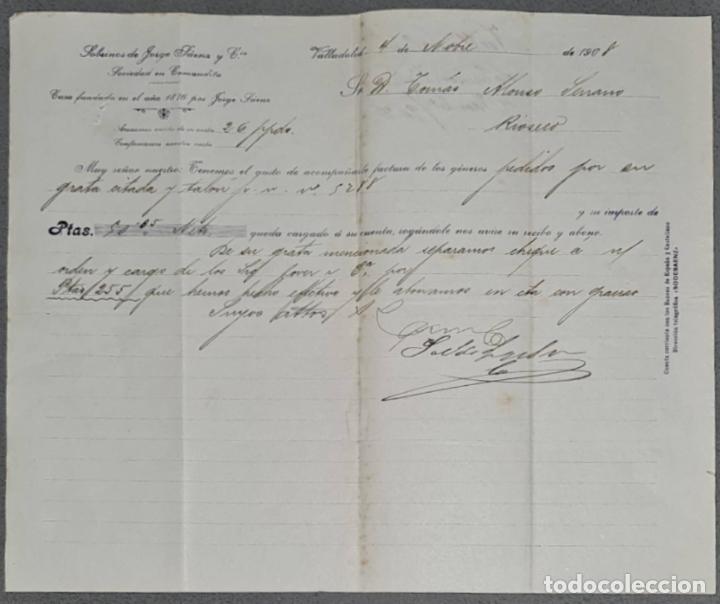 Sobrinos de Jorge Sáenz y Cía
Sociedad en Comandita
Casa fundada en el año 1876 por Jorge Sáenz
Valladolid 4 de Nobre de 1908
Sr. D. Tomás Alonso Serrano
Rioseco
26 ppdo.
Muy señor nuestro: Tenemos el gusto de acompañarle factura de los géneros pedidos por su
grata citada y talón p. v. nº 5288
y su importe de
Ptas. 50.85 Neto queda cargado á su cuenta, rogándole nos avise su recibo y abono.
De su grata mencionada separamos cheque a n/
orden y cargo de los Sres Jover y Cª por
Ptas/255/ que hemos hecho efectivo y le abonamos en cta con gracias
Suyos attos/ S.
Cuenta corriente con los Bancos de España y Castellano
Dirección telegráfica: SODESAENZ
todocoleccion.net